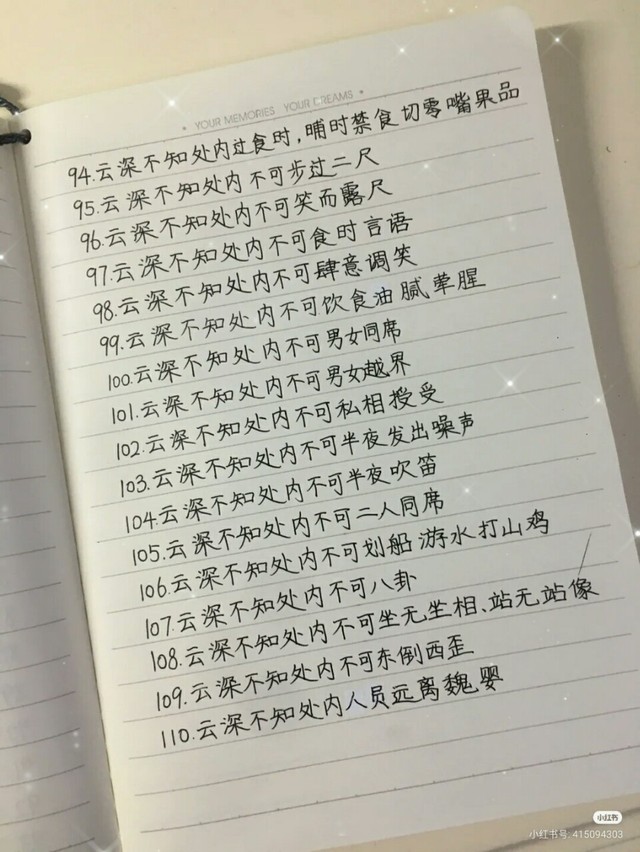 • YOUR MEMORIES YOUR DREAMS •
94.云深不知处内过食时,晡时禁食切零嘴果品
95.云深不知处内不可步过二尺
96.云深不知处内不可笑而露尺
97.云深不知处内不可食时言语
98.云深不知处内不可肆意调笑
99.云深不知处内不可饮食油腻荤腥
100.云深不知处内不可男女同席
101.云深不知处内不可男女越界
102.云深不知处内不可私相授受
103.云深不知处内不可半夜发出噪声
104.云深不知处内不可半夜吹笛
105.云深不知处内不可二人同席
106.云深不知处内不可划船游水打山鸡
107.云深不知处内不可八卦
108.云深不知处内不可坐无坐相、站无站像
109.云深不知处内不可东倒西歪
110.云深不知处内人员远离魏婴
小红书
小红书号: 415094303